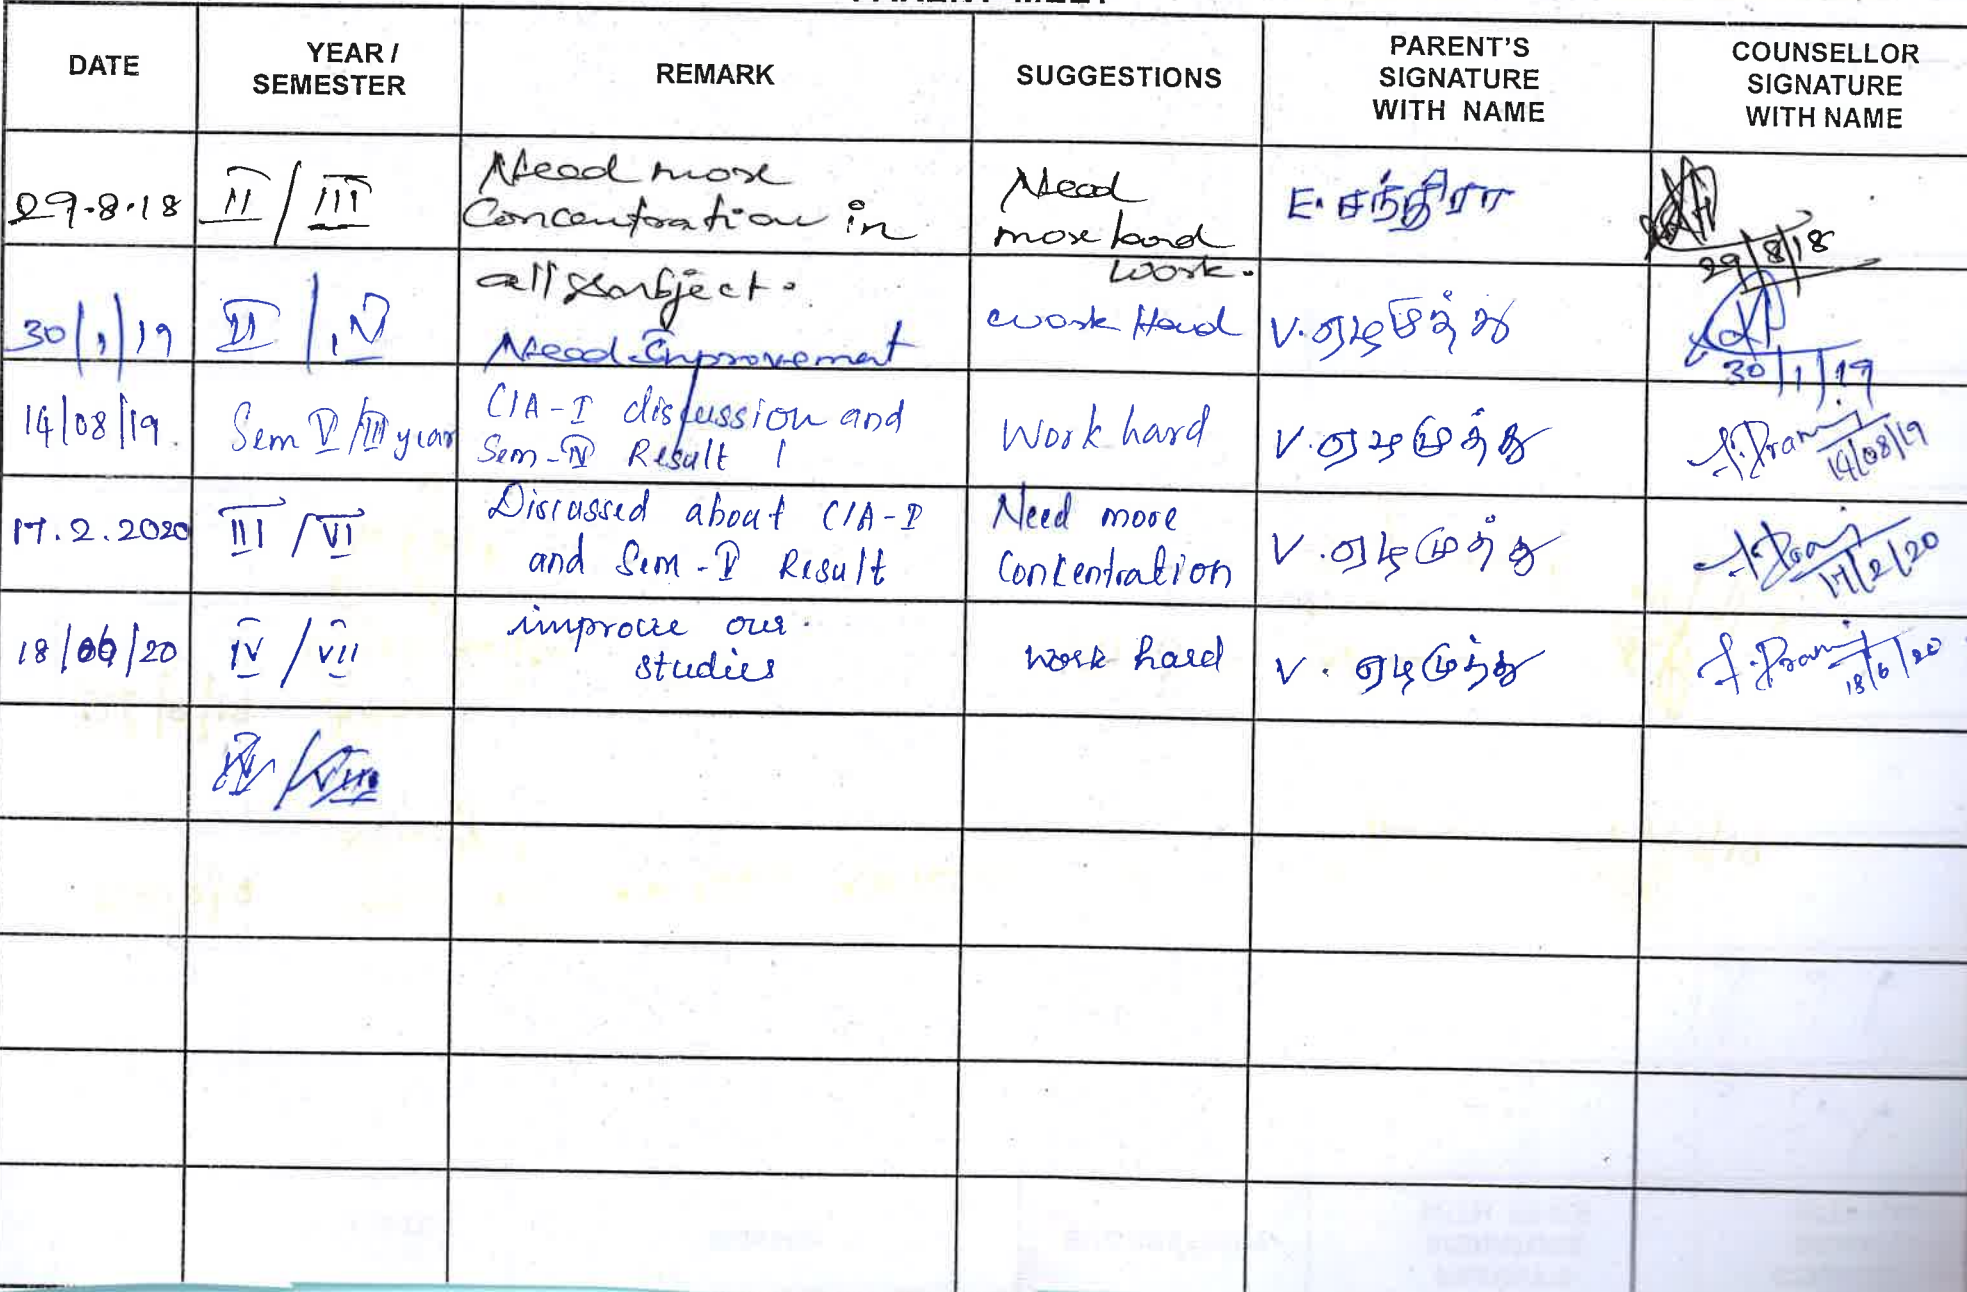 PARENT MEET
DATE
YEAR /
SEMESTER
REMARK
SUGGESTIONS
PARENT'S
SIGNATURE
WITH NAME
COUNSELLOR
SIGNATURE
WITH NAME
29.8.18
II / III
Need more
Concentration in
all subject.
Need
more hard
work.
E. சந்திரா
29/8/18
30/1/19
II / IV
Need Improvement
work Hard
V. ஏழுமுத்து
30/1/19
14/08/19.
Sem V / III year
CIA-I discussion and
Sem-IV Result
Work hard
V.
14/08/19
17.2.2020
III / VI
Discussed about CIA-I
and Sem-V Result
Need more
Concentration
V.
17/2/20
18/06/20
IV / VII
improve our
studies
work hard
V.
18/6/20
IV / VIII